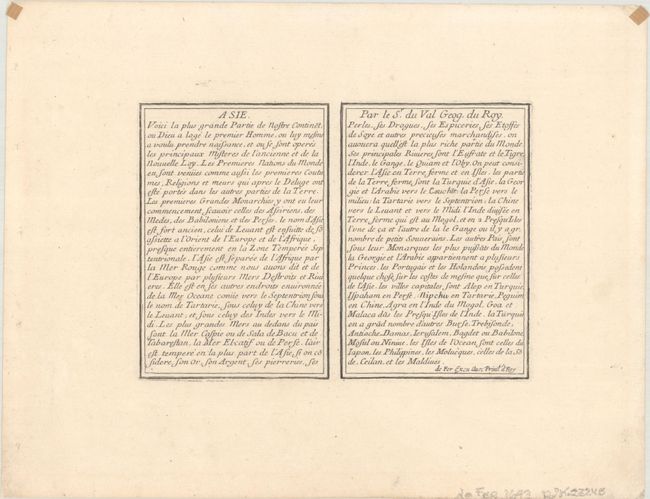 ASIE.
Voici la plus grande Partie de Nostre Continēt,
ou Dieu a logé le premier Homme, ou luy mesme
a voulu prendre naissance, et ou se sont operés
les principaux Misteres de l'ancienne et de la
Nouuelle Loy. Les Premieres Nations du Monde
en sont venües comme aussi les premieres Coutu
mes, Religions et meurs qui apres le Deluge ont
esté portés dans les autres parties de la Terre.
Les premieres Grandes Monarchies y ont eu leur
commencement, scauoir celles des Assiriens, des
Medes, des Babiloniens et des Perses. le nom d'Asie
est fort ancien, celuy de Leuant est ensuitte de so
assiette a l'Orient de l'Europe et de l'Afrique.
presque entierement en la Zone Temperée Sep
tentrionale. l'Asie est separée de l'Afrique par
la Mer Rouge comme nous auons dit et de
l'Europe par plusieurs Mers Destroits et Riui
eres. Elle est en ses autres endroits enuironnée
de la Mer Oceane comē vers le Septentrion sous
le nom de Tartarie, sous celuy de la Chine vers
le Leuant, et sous celuy des Indes vers le Mi-
di. Les plus grandes Mers au dedans du païs
sont la Mer Caspie ou de Sala de Bacu, et de
Tabarestan, la Mer Elcatif ou de Perse. l'air
est temperé en la plus part de l'Asie, si on cō
sidere, son Or, son Argent, ses pierreries, ses
Par le Sr. du Val Geog. du Roy.
Perles, ses Drogues, ses Espiceries, ses Etoffes
de Soye et autres precieuses marchandises, on
auouera qu'ell'est la plus riche partie du Monde.
Ses principales Riuieres sont l'Eufrate et le Tigre,
l'Inde, le Gange, le Quiam et l'Oby. On peut consi-
derer l'Asie en Terre ferme et en Isles. les partis
de la Terre ferme, sont la Turquie d'Asie, la Geor
gie et l'Arabie vers le Couchāt: la Perse vers le
milieu: la Tartarie vers le Septentrion: la Chine
vers le Leuant et vers le Midi l'Inde diuisée en
Terre ferme qui est au Mogol, et en 2 Presqu'Isles
l'une de ça et l'autre de la le Gange ou il y a gr.
nombre de petits Souuerains. Les autres Païs sont
sous leur Monarques les plus puissās du Monde
la Georgie et l'Arabie appartienent a plusieurs
Princes. les Portugais et les Holandois possedent
quelque chose sur les costes de mesme que sur celles
de l'Asie. les villes capitales, sont Alep en Turquie
Ispaham en Perse, Nipchu en Tartarie, Pequim
en Chine, Agra en l'Inde du Mogol, Goa et
Malaca dās les Presqu'Isles de l'Inde. la Turquie
en a grād nombre d'autres Burse, Trebisonde,
Antioche, Damas, Ierusalem, Bagdet ou Babilone
Mosul ou Niniue. les Isles de l'Ocean, sont celles du
Iapon, les Philipines, les Moluques, celles de la Sō
de, Ceilan, et les Maldiues.
de Fer Excu Auec Priuil. d Roy